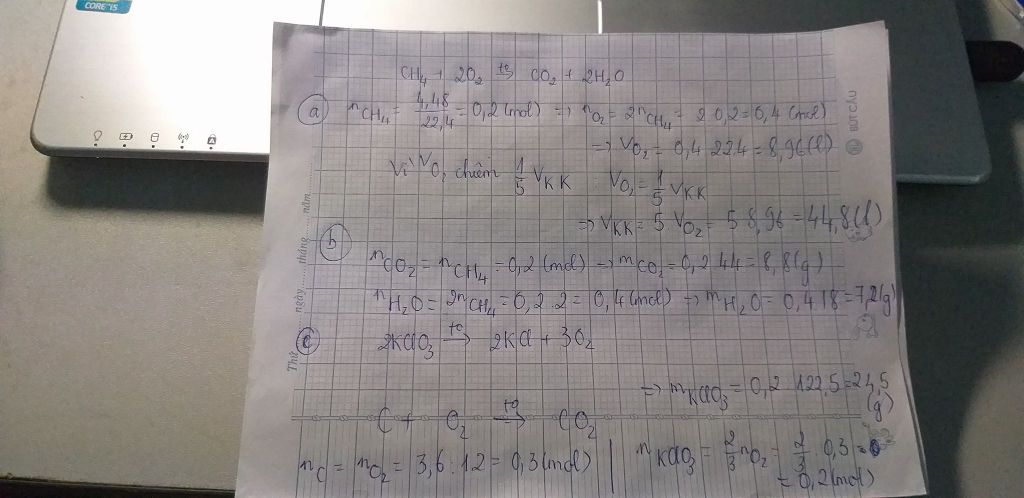 CORE i5
CH₄ + 2O₂ t° → CO₂ + 2H₂O
a nCH₄ = 4,48/22,4 = 0,2 (mol) => nO₂ = 2nCH₄ = 2 0,2 = 0,4 (mol)
=> VO₂ = 0,4 22,4 = 8,96 (l)
Vì VO₂ chiếm 1/5 VKK VO₂ = 1/5 VKK
=> VKK = 5 VO₂ = 5 8,96 = 44,8 (l)
b
nCO₂ = nCH₄ = 0,2 (mol) => mCO₂ = 0,2 44 = 8,8 (g)
nH₂O = 2nCH₄ = 0,2.2 = 0,4 (mol) => mH₂O = 0,4.18 = 7,2 (g)
c 2KClO₃ t° → 2KCl + 3O₂
=> mKClO₃ = 0,2 122,5 = 24,5 (g)
C + O₂ t° → CO₂
nC = nO₂ = 3,6 : 12 = 0,3 (mol)
nKClO₃ = 2/3 nO₂ = 2/3 0,3 =
= 0,2 (mol)
Thứ ngày ...... tháng ...... năm ......
BÚT CÂU